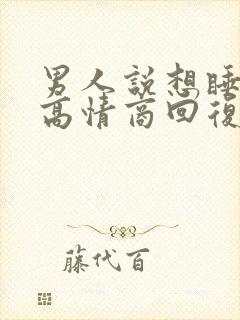 男人説想睡
高情商回復
藤代百